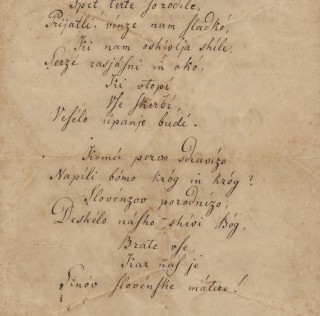 Spet terte sorodile,
Prijatli! vinze nam sladkó,
Ki nam oshivlja shile,
Serzé rasjásni in okó.
Ki vtopi
Vse skerbi,
Vesélo úpanje budi.
Komú pervo sdravizo
Napili bómo króg in króg?
Slovénzov porodnizo,
Deshélo násho shivi Bóg,
Brate vse
Kar nas je
Sinóv slovénske mátere!